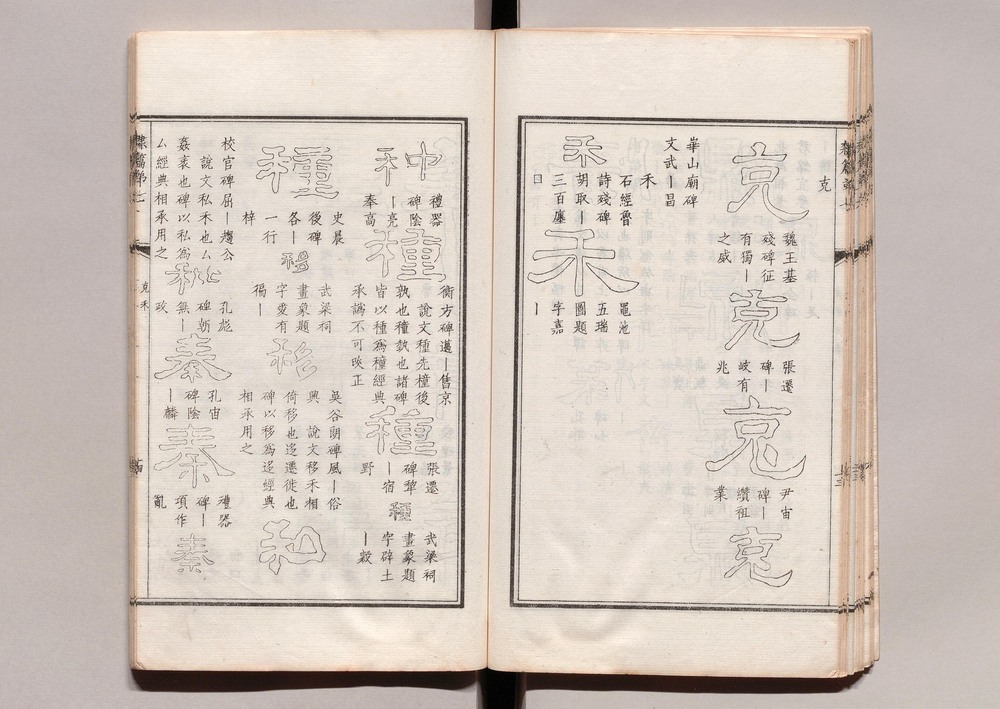 克
克
魏王基
殘碑征
有獨丨
之威
克
張遷
碑丨
岐有
兆
克
尹宙
碑丨
纘祖
業
克
崋山廟碑
文武丨昌
禾
禾
石經魯
詩殘碑
胡取丨
三百廛
囗
禾
黽池
五瑞
圖題
字嘉
丨
种
禮器
碑陰
丨亮
奉高
種
衡方碑邁丨售京
說文種先穜後
孰也穜埶也諸碑
皆以種爲穜經典
承譌不可㪅正
種
張遷
碑犂
丨宿
野
種
武梁祠
畫象題
字辟土
丨縠
種
史晨
後碑
各丨
一行
梓
穆
武梁祠
畫象題
字夏有
䅥丨
移
吳谷朗碑風丨俗
興 說文移禾相
倚移也迻遷徙也
碑以移爲迻經典
相承用之
和
校官碑屈丨趨公
說文私禾也厶
姦衺也碑以私爲
厶經典相承用之
秕
孔彪
碑朝
無丨
政
秦
孔宙
碑陰
丨麟
秦
禮器
碑丨
項作
亂
秦
克禾